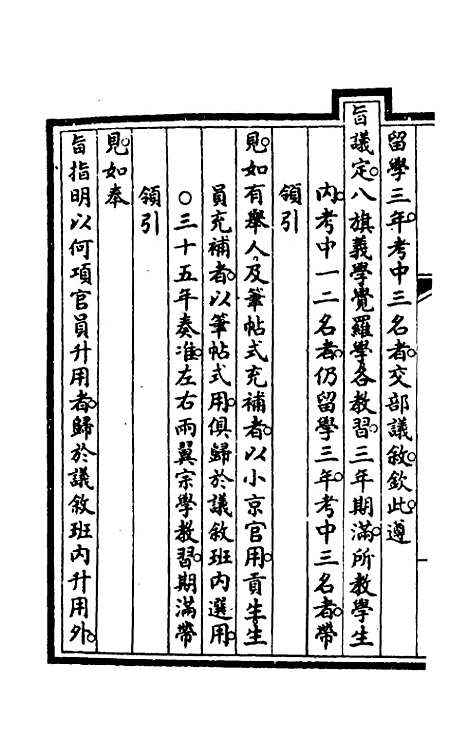 留學三年考中三名者交部議敘欽此遵
旨議定八旗義學覺羅學各教習三年期滿所教學生
內考中一二名者仍留學三年考中三名者帶
領引
見如有舉人及筆帖式充補者以小京官用貢生生
員充補者以筆帖式用俱歸於議敘班內選用
○三十五年奏准左右兩翼宗學教習期滿帶
領引
見如奉
旨指明以何項官員升用者歸於議敘班內升用外